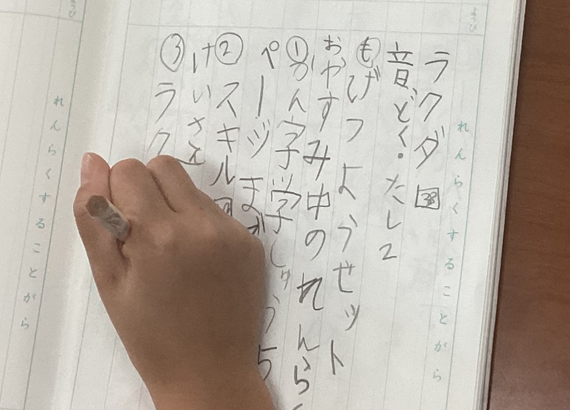 れんらくすることがら
ラクダ図
音どく・たし2
もげつようセット
おやすみ中のれんらく
①かん字学しゅう5
ページまで
②スキル
けいさん
③ラク
れんらくすることがら